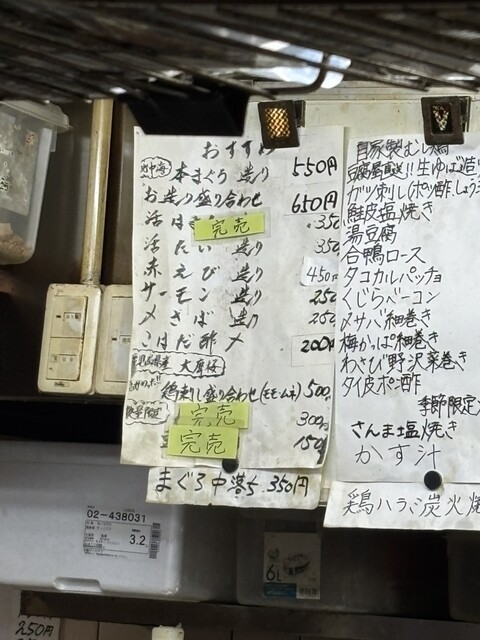 おすすめ
地中海 本まぐろ 造り 550円
お造り盛り合わせ 650円
活はま 完売 350
活 たい 造り 350
赤 えび 造り 450
サーモン 造り 250
〆さば 造り 250
こはだ酢〆 200円
大摩桜
鶏刺し盛り合わせ(モモムネ) 500
数量限定 完売 300
完売 150
まぐろ中落ち 350円
自家製むし鶏
豆腐屋直送!!生ゆば造り
ガツ刺し(ポン酢しょう
鮭皮塩焼き
湯豆腐
合鴨ロース
タコカルパッチョ
くじらベーコン
〆サバ細巻き
梅かっぱ細巻き
わさび野沢菜巻き
タイ皮ポン酢
季節限定
さんま塩焼き
かす汁
鶏ハラミ炭火焼
02-438031
3.2
6L
250円